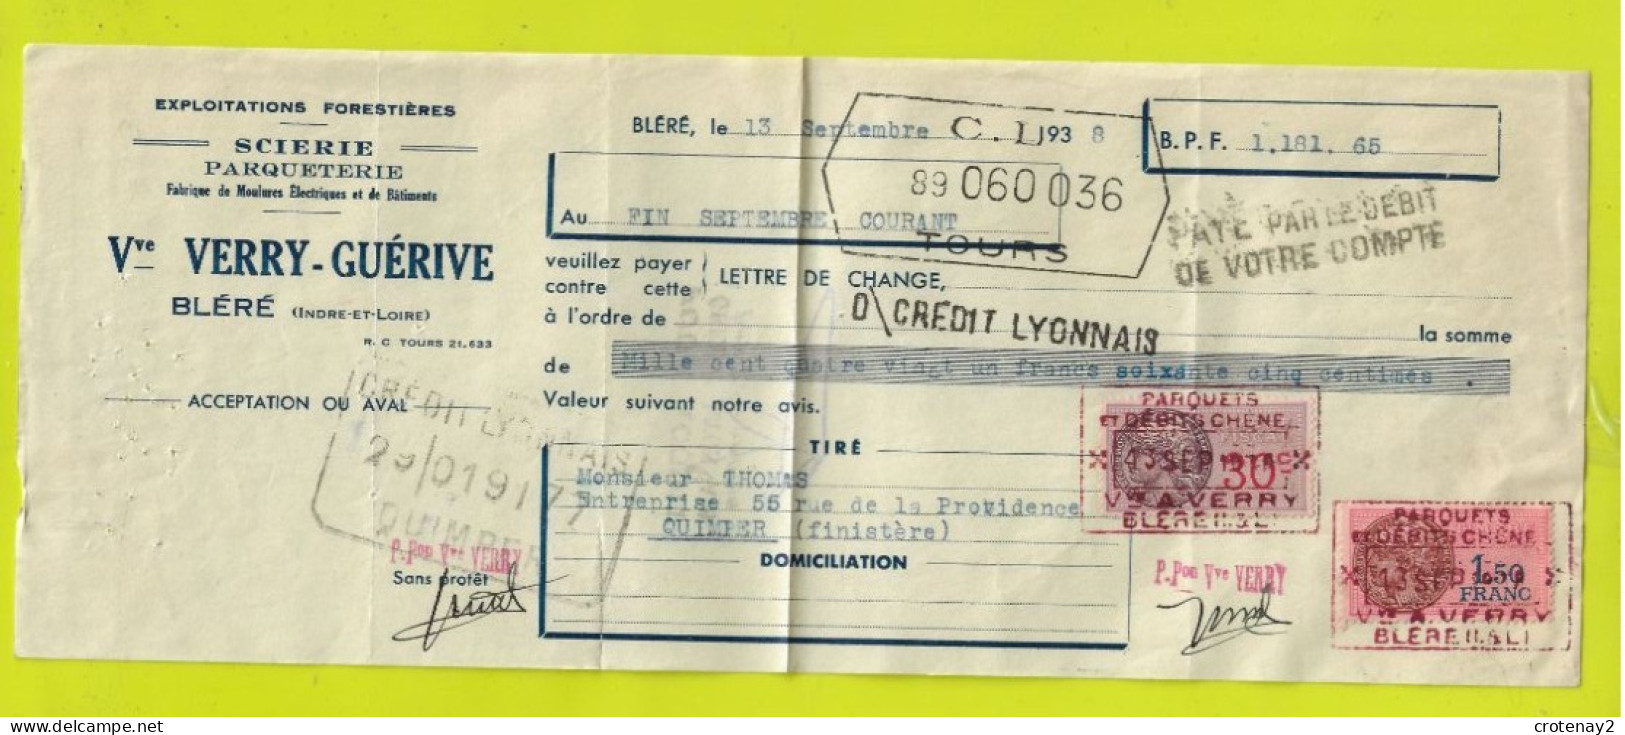 EXPLOITATIONS FORESTIÈRES
SCIERIE
PARQUETERIE
Fabrique de Moulures Électriques et de Bâtiments
Vve VERRY-GUÉRIVE
BLÉRÉ (INDRE-ET-LOIRE)
R. C TOURS 21.633
ACCEPTATION OU AVAL
CRÉDIT LYONNAIS
29/01917
QUIMPER
P. Pon Vve VERRY
Sans protêt
BLÉRÉ, le 13 Septembre 1938
C. L
89 060 036
TOURS
B. P. F. 1.181. 65
Au FIN SEPTEMBRE COURANT
PAYÉ PAR LE DEBIT
DE VOTRE COMPTE
veuillez payer
contre cette
LETTRE DE CHANGE,
à l'ordre de CREDIT LYONNAIS la somme
de Mille cent quatre vingt un francs soixante cinq centimes .
Valeur suivant notre avis.
TIRÉ
Monsieur THOMAS
Entreprise 55 rue de la Providence
QUIMPER (finistère)
DOMICILIATION
PARQUETS
ET DÉBITS CHÊNE
13 SEP
30c
Vve A. VERRY
BLÉRÉ (I.&L)
P. Pon Vve VERRY
PARQUETS
ET DÉBITS CHÊNE
13 SEP
1.50
FRANC
Vve A. VERRY
BLÉRÉ (I.&L)
delcampe.net
crotenay2